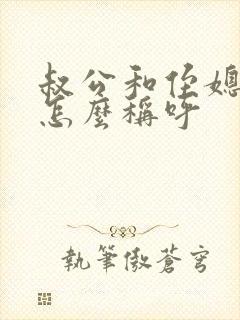 叔公和侄媳
怎麼稱呼
執筆傲蒼穹